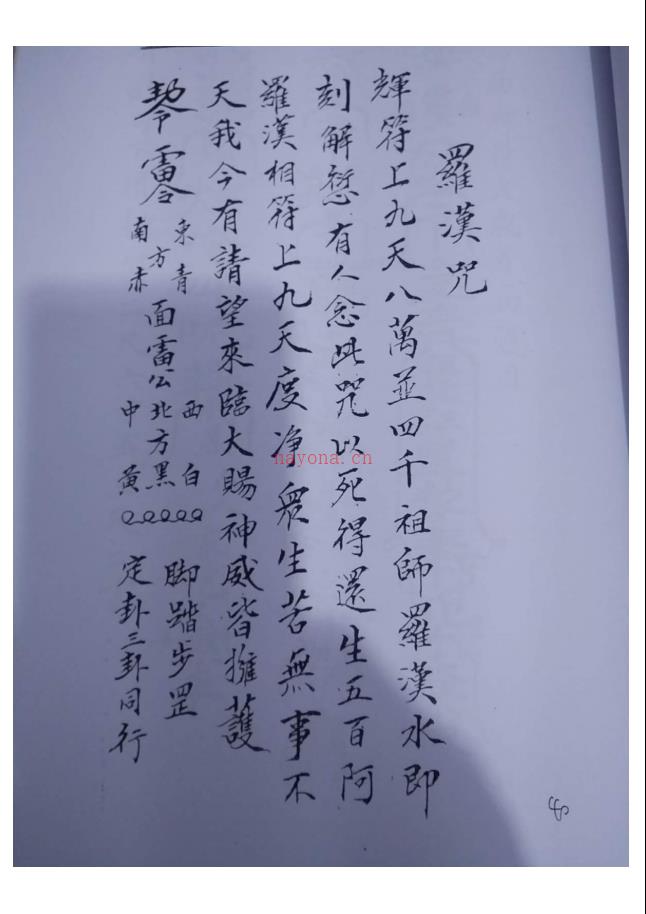 羅漢咒
輝符上九天八萬並四千祖師羅漢水即
刻解愆有人念此咒以死得還生五百阿
羅漢相符上九天度净眾生苦無事不
天我今有請望來臨大賜神威皆擁護
東青
南方赤
面雷公
西白
北方黑
中黃
脚踏步罡
定卦三卦同行
nayona.cn